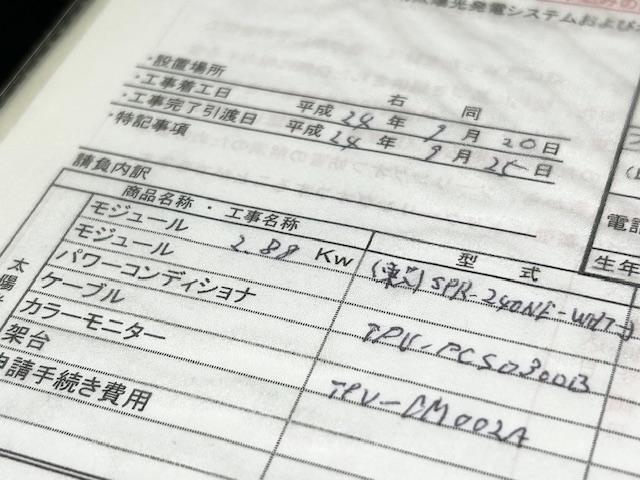 太陽光発電システムおよび
・設置場所 右 同
・工事着工日 平成 24 年 9 月 20 日
・工事完了引渡日 平成 24 年 9 月 25 日
・特記事項
請負内訳
商品名称・工事名称 型 式
モジュール (東芝) SPR-240NE-WHT-J
モジュール 2.88 Kw
パワーコンディショナ TPV-PCS0300B
ケーブル
カラーモニター TPV-CM002A
架台
申請手続き費用
太陽
電話
生年